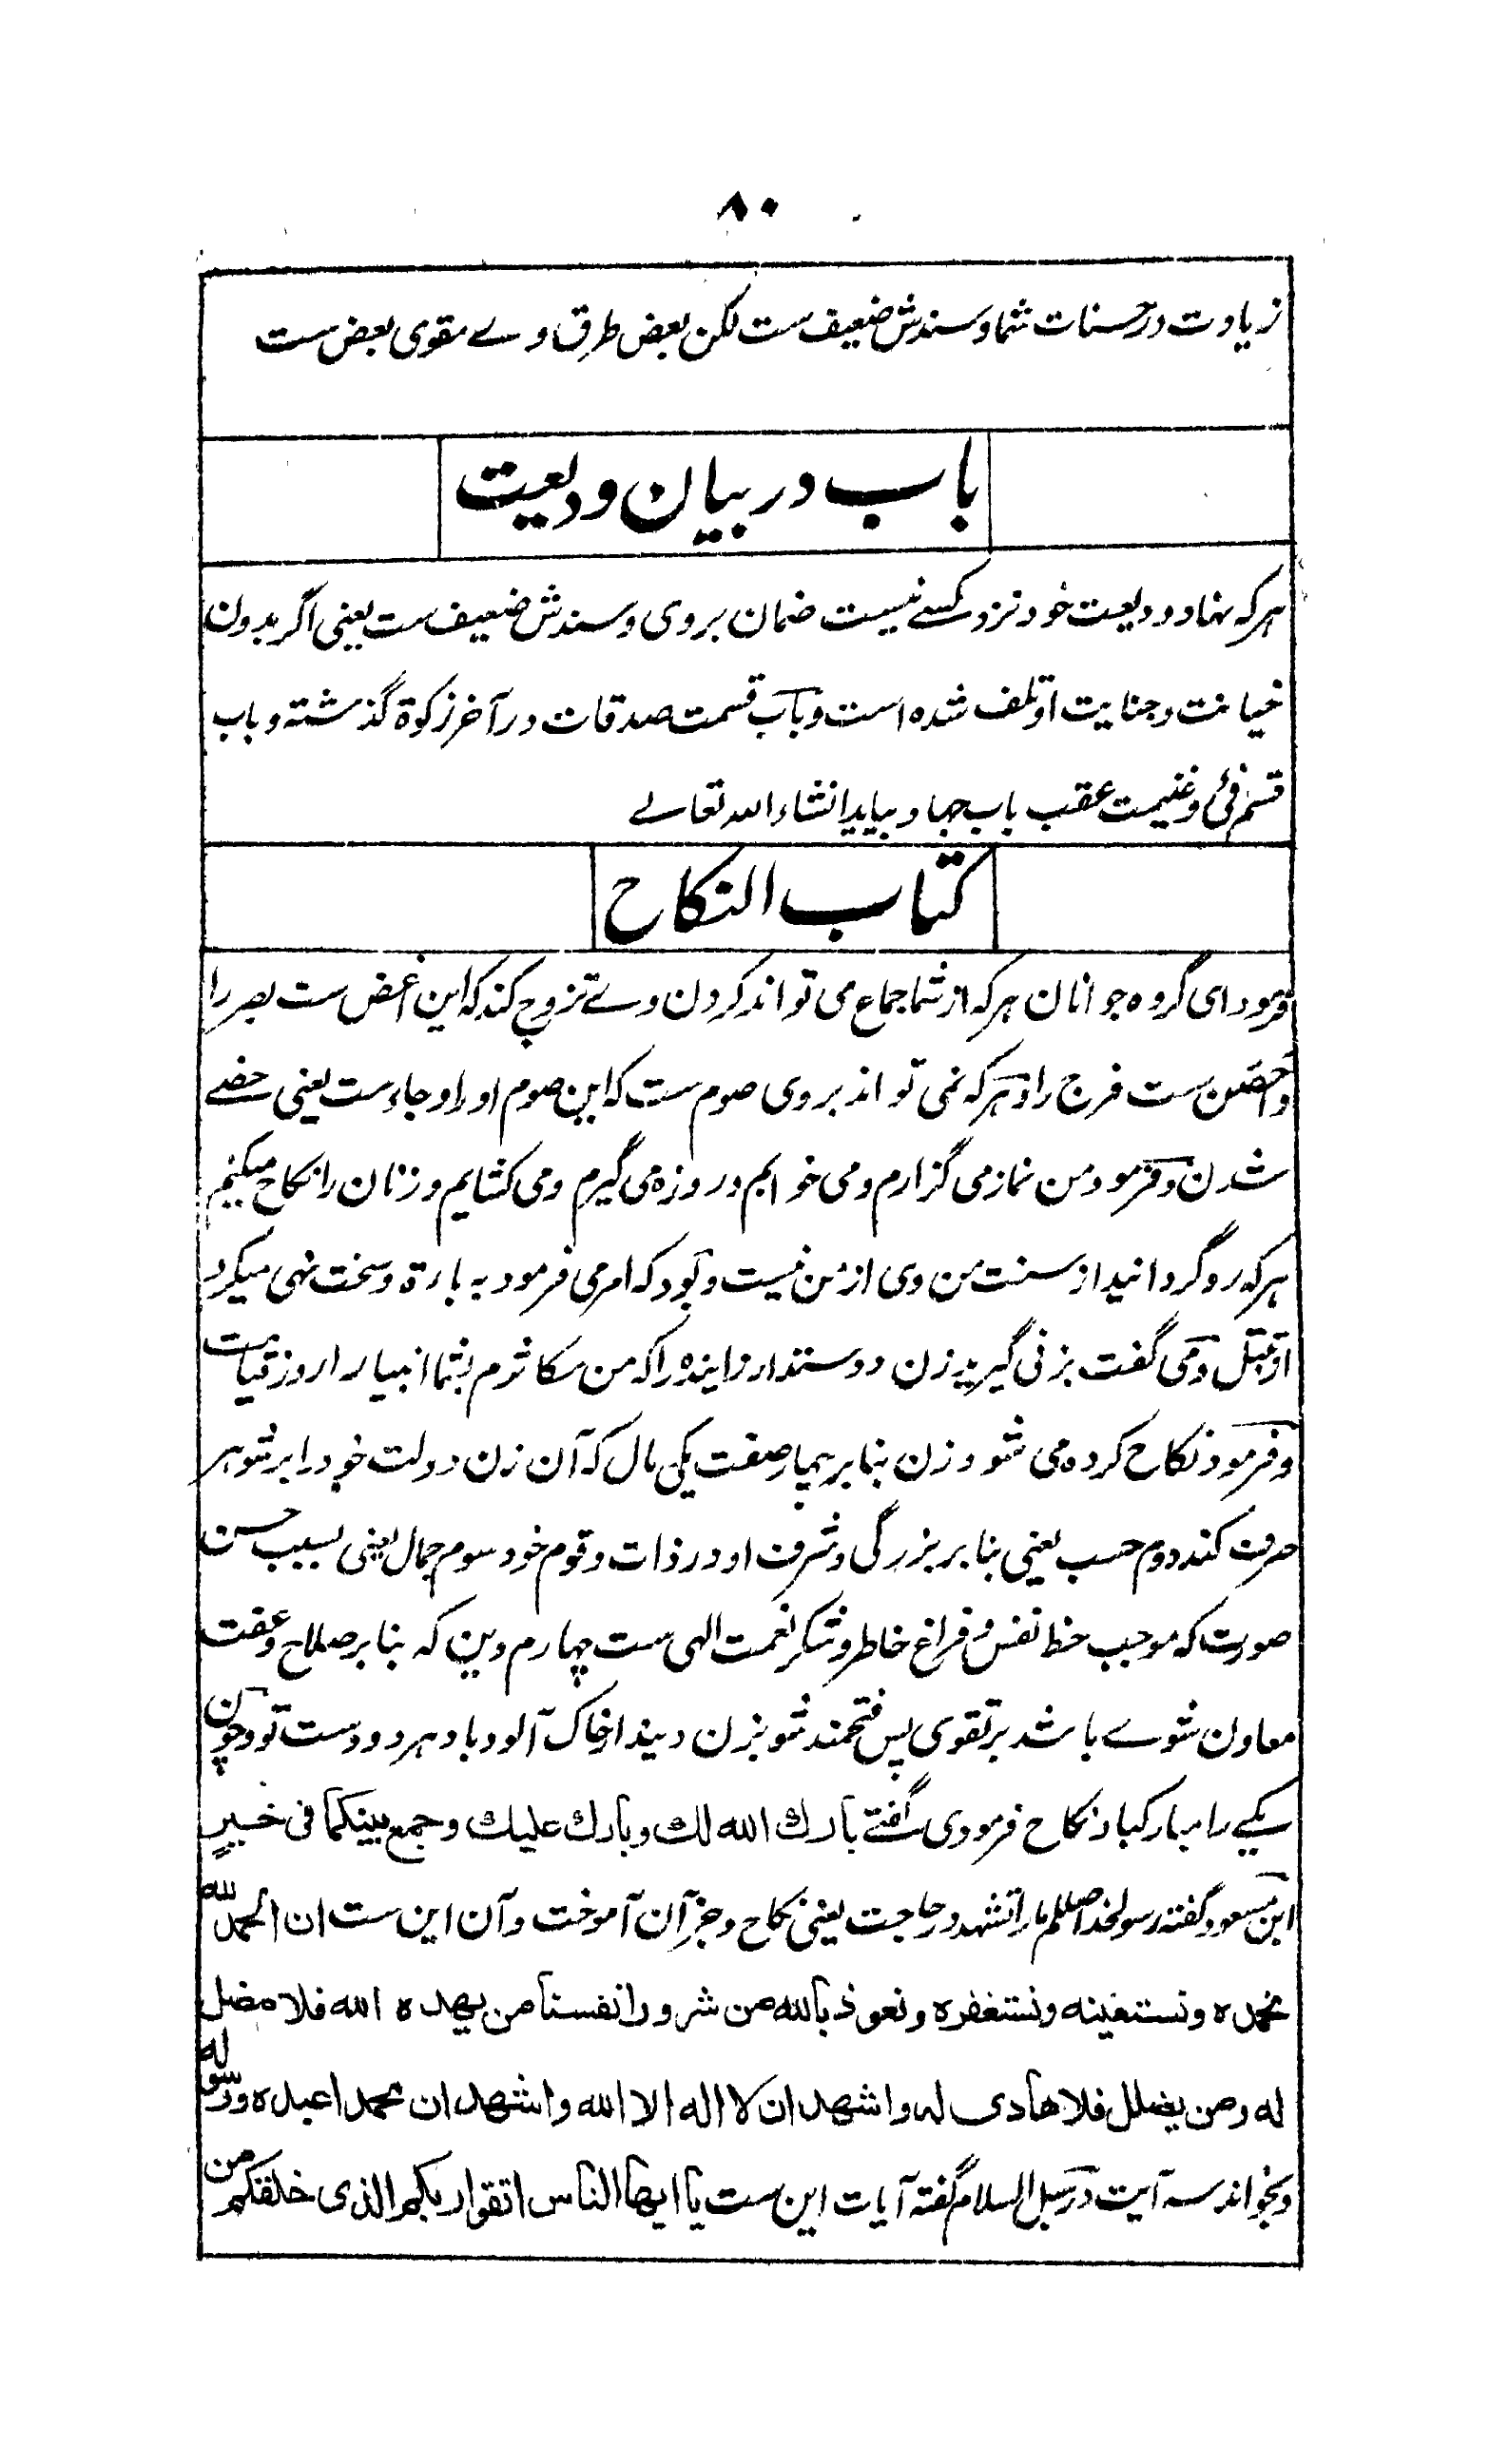 ۸۰
زیادت در حسنات شما و سندش ضعیف ست لکن بعض طرق وے مقوی بعض ست
باب در بیان ودیعت
هرکه نهاد ودیعت خود نزد کسے نیست ضمان بروی و سندش ضعیف ست یعنی اگر بدون
خیانت و جنایت او تلف شده است و باب قسمت صدقات در آخر زکوة گذشته و باب
قسم فئ و غنیمت عقب باب جهاد بیاید انشاء الله تعالے
کتاب النکاح
فرمود ای گروه جوانان هرکه از شما جماع می تواند کردن وے تزوج کند که این اغض ست بصر را
و احصن ست فرج را و هرکه نمی تواند بروی صوم ست که این صوم او را وجاء ست یعنی خصے
شدن و فرمود من نماز می گزارم و می خوابم و روزه می گیرم و می کشایم و زنان را نکاح میکنم
هرکه رو گردانید از سنت من وی از من نیست و بود که امر می فرمود به باءة و سخت نهی میکرد
از تبتل و می گفت بزنی گیرید زن دوستدار زاینده را که من مکاثرم بشما انبیا را روز قیامت
و فرمود نکاح کرده می شود زن بنا بر چهار صفت یکی مال که آن زن دولت خود را بر شوهر
صرف کند دوم حسب یعنی بنا بر بزرگی و شرف او در ذات و قوم خود سوم جمال یعنی بسبب حسن
صورت که موجب حظ نفس و فراغ خاطر و شکر نعمت الهی ست چهارم دین که بنا بر صلاح و عفت
معاون شوے باشد بر تقوی پس فتحمند شو بزن دیندار خاک آلود باد هر دو دست تو و چون
یکے را مبارکباد نکاح فرمودی گفتے بارك الله لك وبارك عليك وجمع بينكما فى خير
ابن مسعود گفته رسولخدا صللم ما را تشهد در حاجت یعنی نکاح و جز آن آموخت و آن این ست ان الحمد لله
نحمده ونستعينه ونستغفره ونعوذ بالله من شرور انفسنا من يهده الله فلا مضل
له ومن يضلل فلا هادى له واشهد ان لا اله الا الله واشهد ان محمدا عبده ورسوله
و بخواند سه آیت در سبل السلام گفته آیات این ست يا ايها الناس اتقوا ربكم الذى خلقكم من